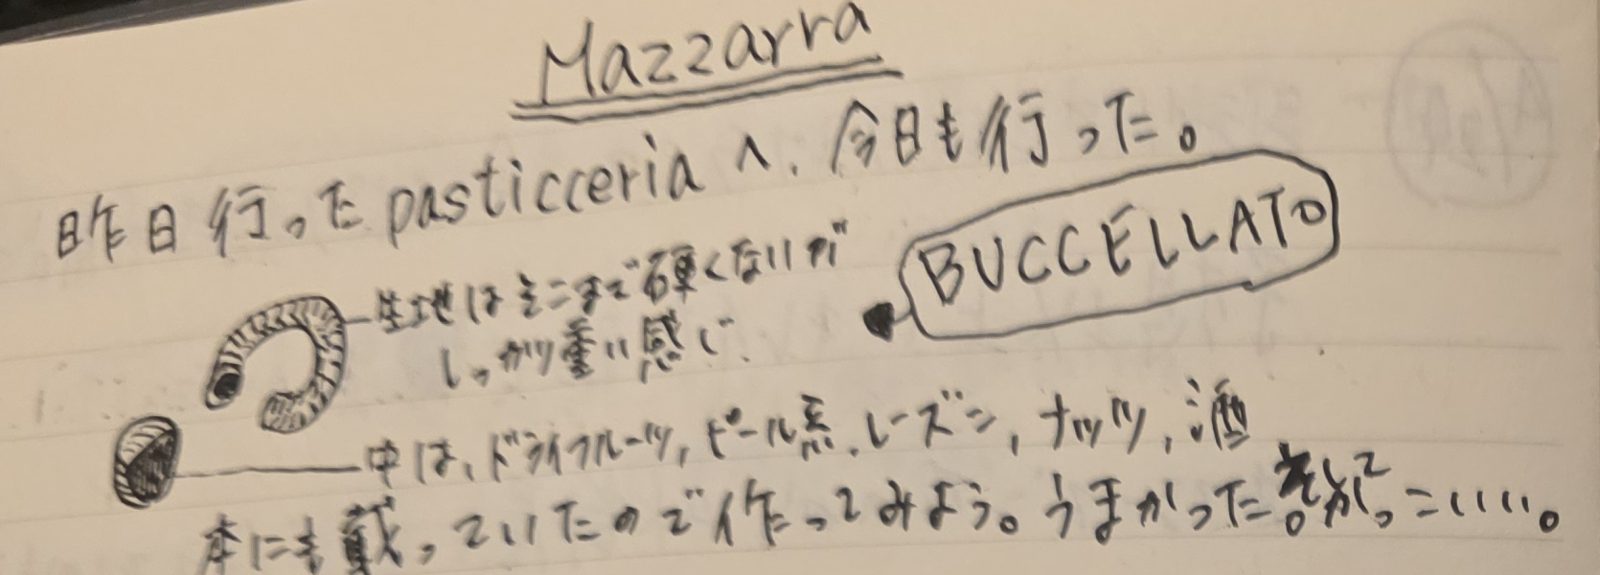 Mazzarra
昨日行ったpasticceriaへ、今日も行った。
BUCCELLATO
生地はそこまで硬くないが
しっかり重い感じ。
中は、ドライフルーツ, ピール系, レーズン, ナッツ, 酒
本にも載っていたので作ってみよう。うまかった。かっこいい。